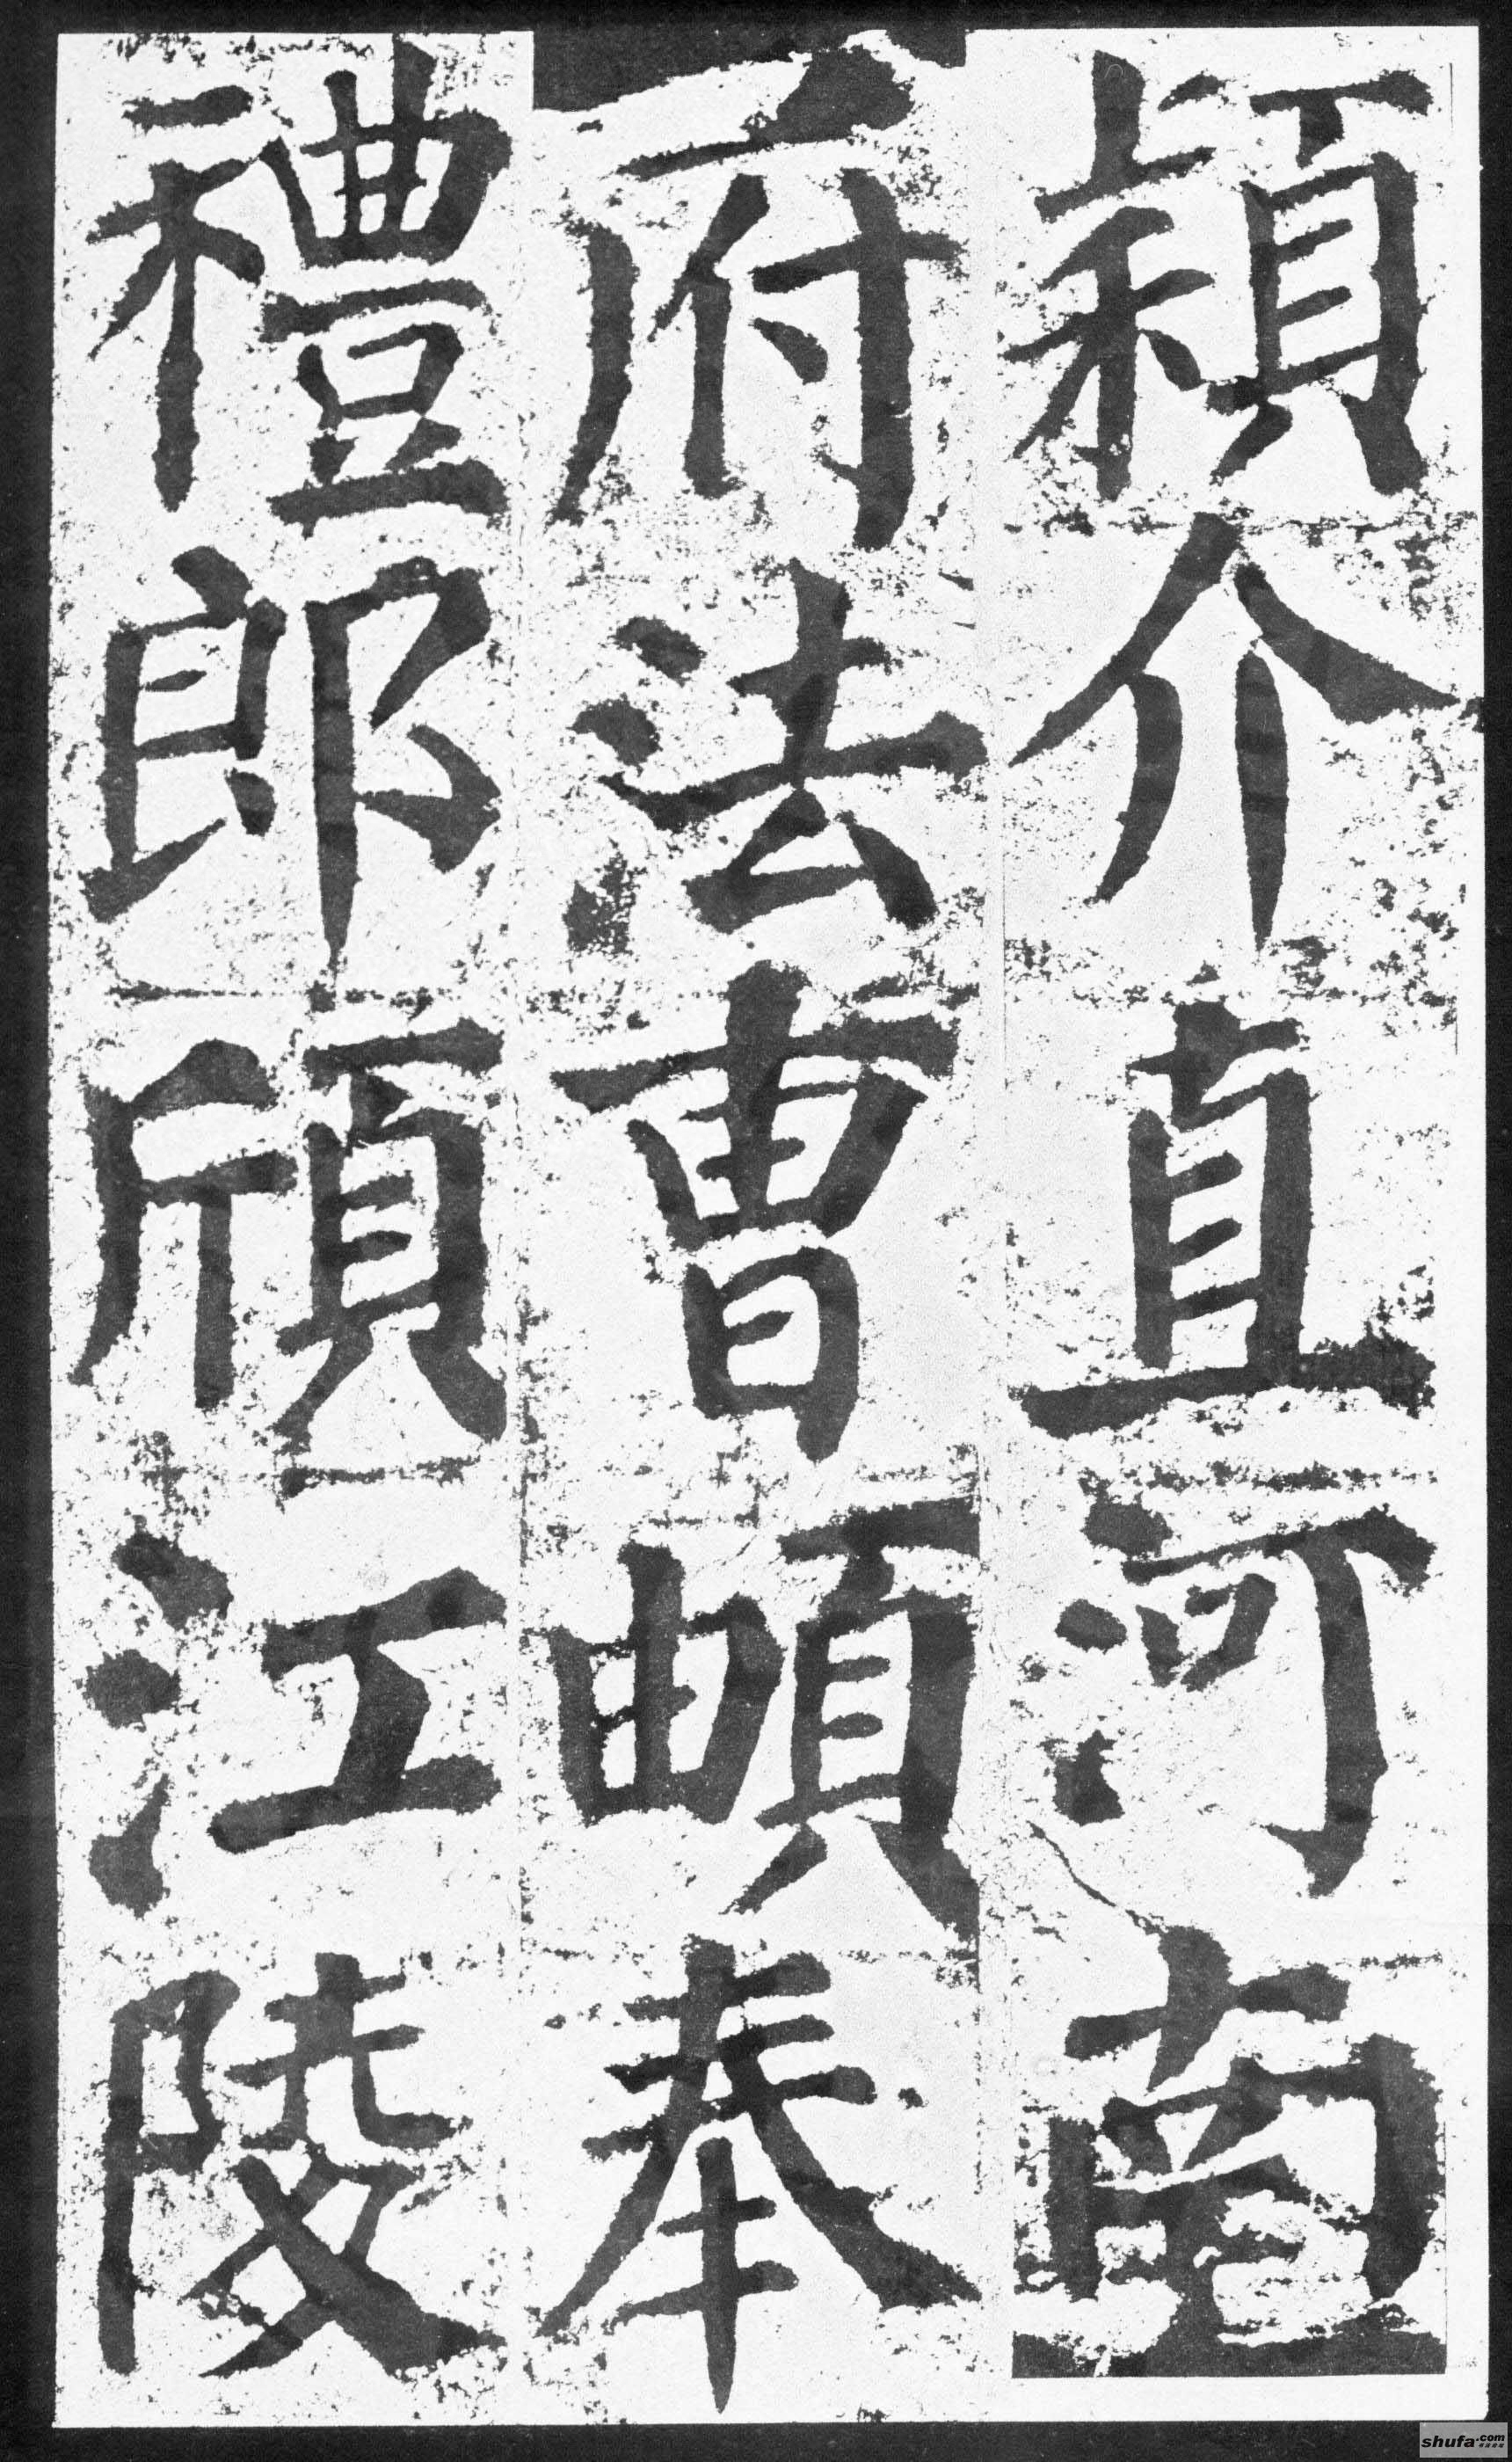 穎介直河南
府法曹頔奉
禮郎頎江陵
shufa.com